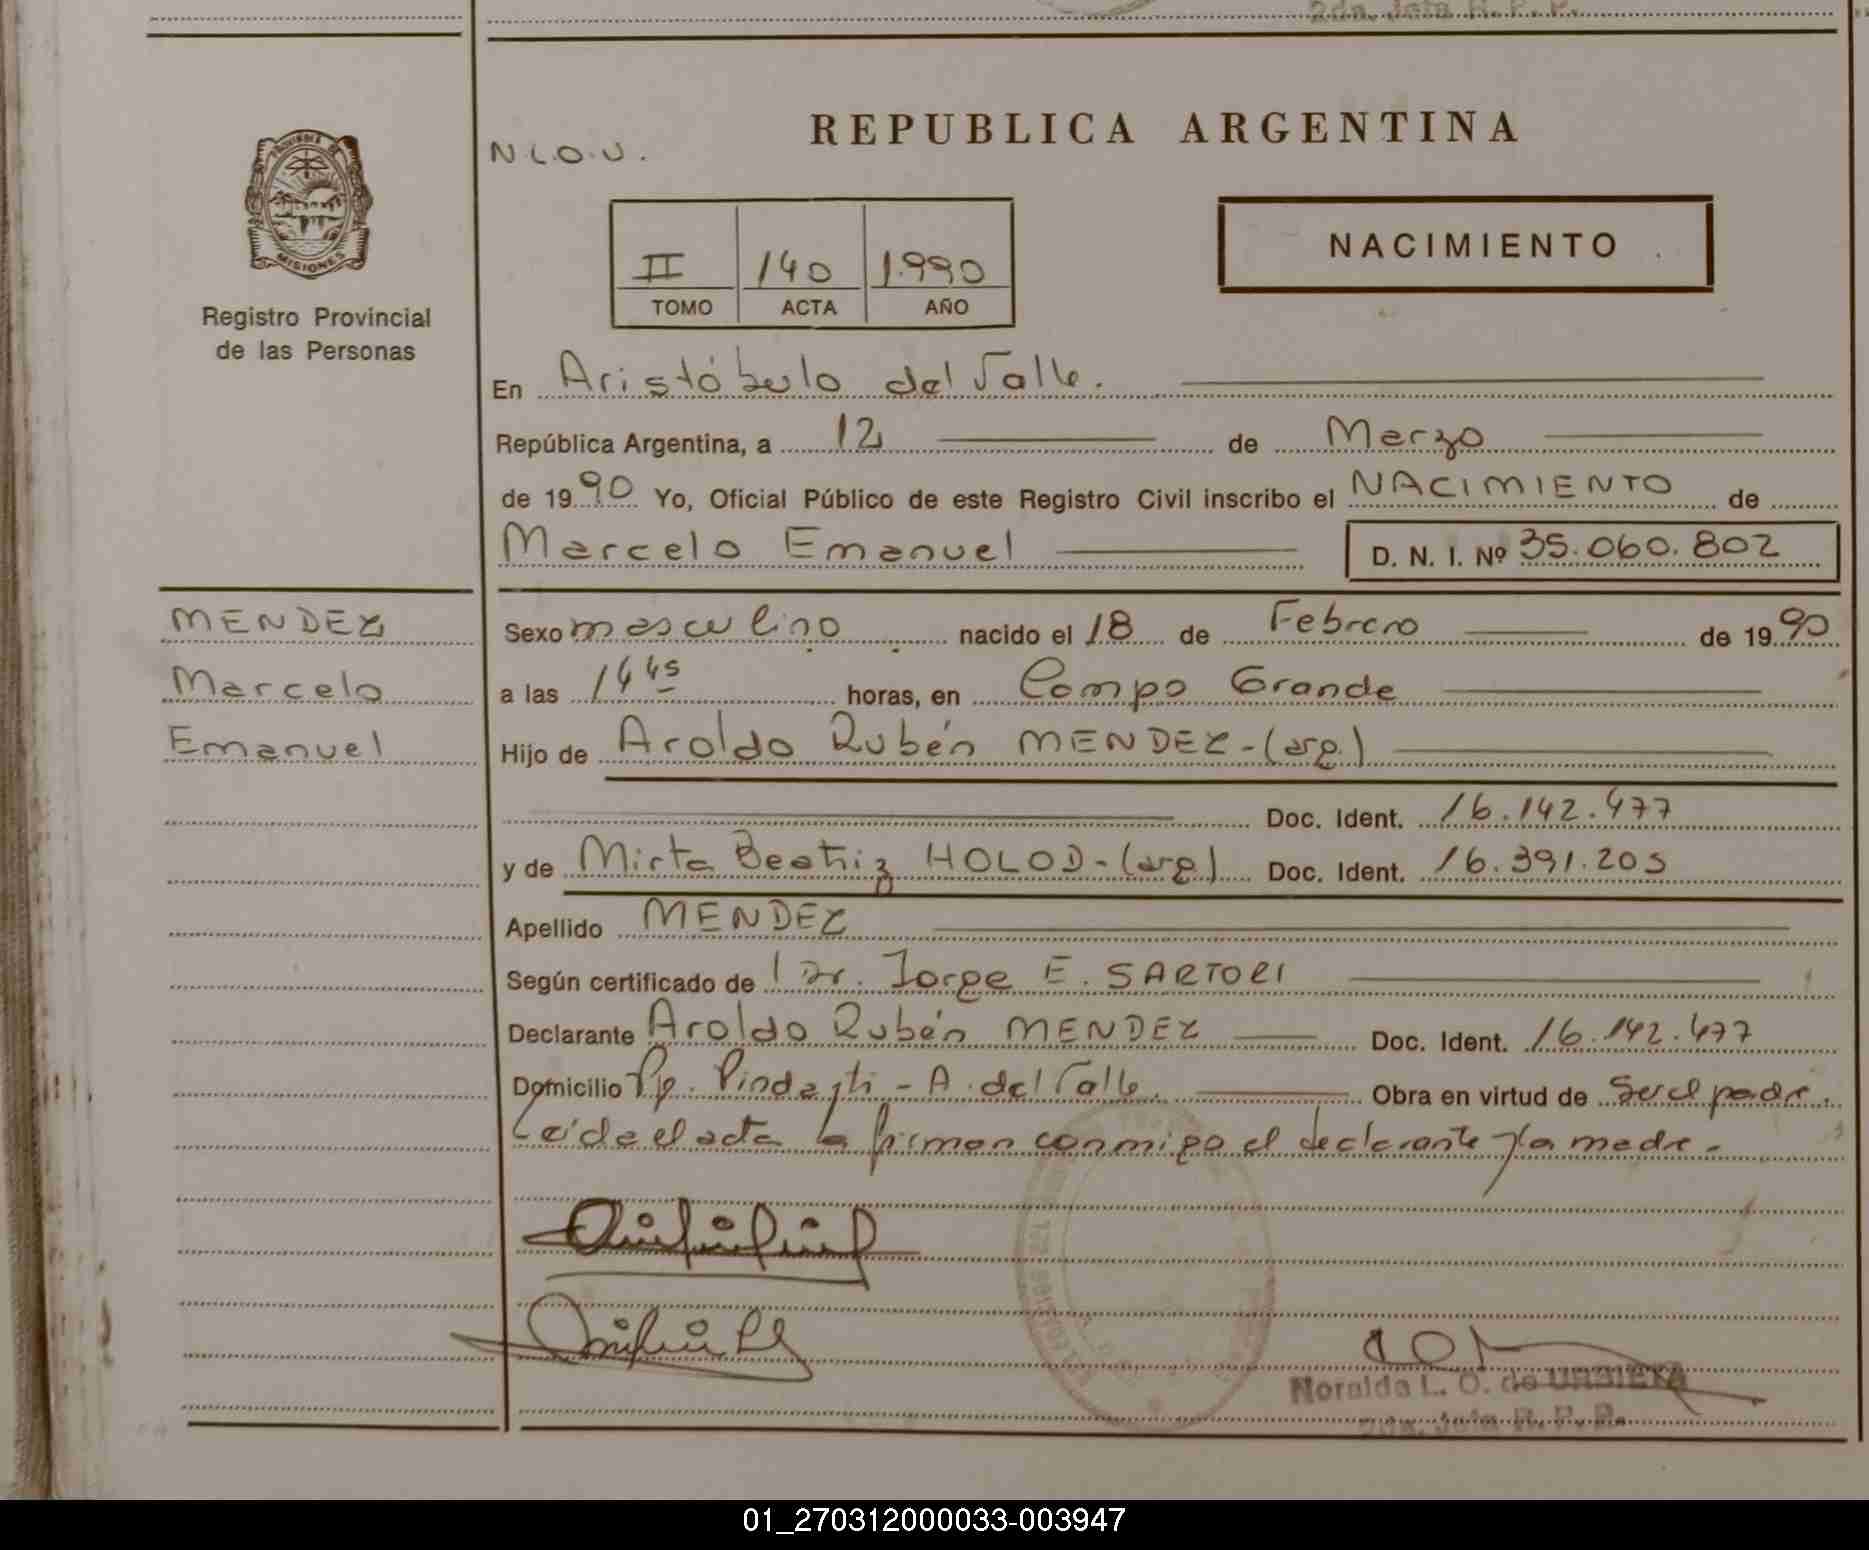 2da. Jefa R. P. P.
PROVINCIA DE
MISIONES
Registro Provincial
de las Personas
N.L.O.U.
REPUBLICA ARGENTINA
II 140 1.990
TOMO ACTA AÑO
NACIMIENTO
En Aristóbulo del Valle.
República Argentina, a 12 de Marzo
de 1990 Yo, Oficial Público de este Registro Civil inscribo el NACIMIENTO de
Marcelo Emanuel D. N. I. Nº 35.060.802
MENDEZ
Marcelo
Emanuel
Sexo masculino nacido el 18 de Febrero de 1990
a las 14 45 horas, en Campo Grande
Hijo de Aroldo Rubén MENDEZ-(arg.)
Doc. Ident. 16.142.477
y de Mirta Beatriz HOLOD-(arg) Doc. Ident. 16.391.205
Apellido MENDEZ
Según certificado de Dr. Jorge E. SARTORI
Declarante Aroldo Rubén MENDEZ Doc. Ident. 16.142.477
Domicilio Pje. - A. del Valle. Obra en virtud de Ser el padre.
Leída el acta la firman conmigo el declarante y la madre.
Noralda L. O. de URBIETA
2da. Jefa R. P. P.
01_270312000033-003947